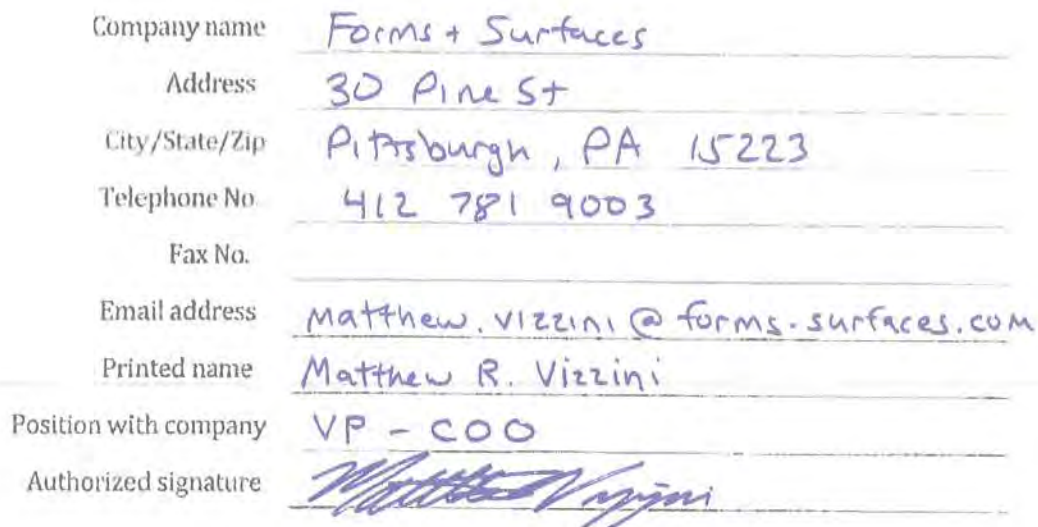 Company name Forms + Surfaces
Address 30 Pine St
City/State/Zip Pittsburgh, PA 15223
Telephone No. 412 781 9003
Fax No.
Email address matthew.vizzini@forms-surfaces.com
Printed name Matthew R. Vizzini
Position with company VP - COO
Authorized signature Matthew Vizzini